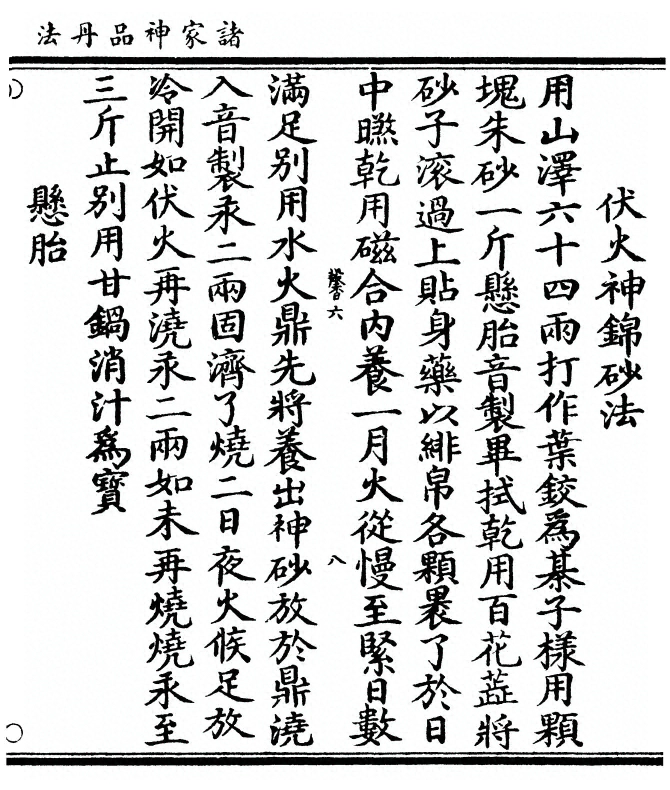 諸家神品丹法
伏火神錦砂法
用山澤六十四兩打作葉鉸為棊子樣用顆
塊朱砂一斤懸胎音製畢拭乾用百花蘂將
砂子滚過上貼身藥以緋帛各顆褁了於日
中㬠乾用磁合内養一月火從慢至緊日數
馨六
八
滿足别用水火鼎先將養出神砂放於鼎澆
入音製汞二兩固濟了燒二日夜火候足放
冷開如伏火再澆汞二兩如未再燒燒汞至
三斤止别用甘鍋消汁為寶
懸胎